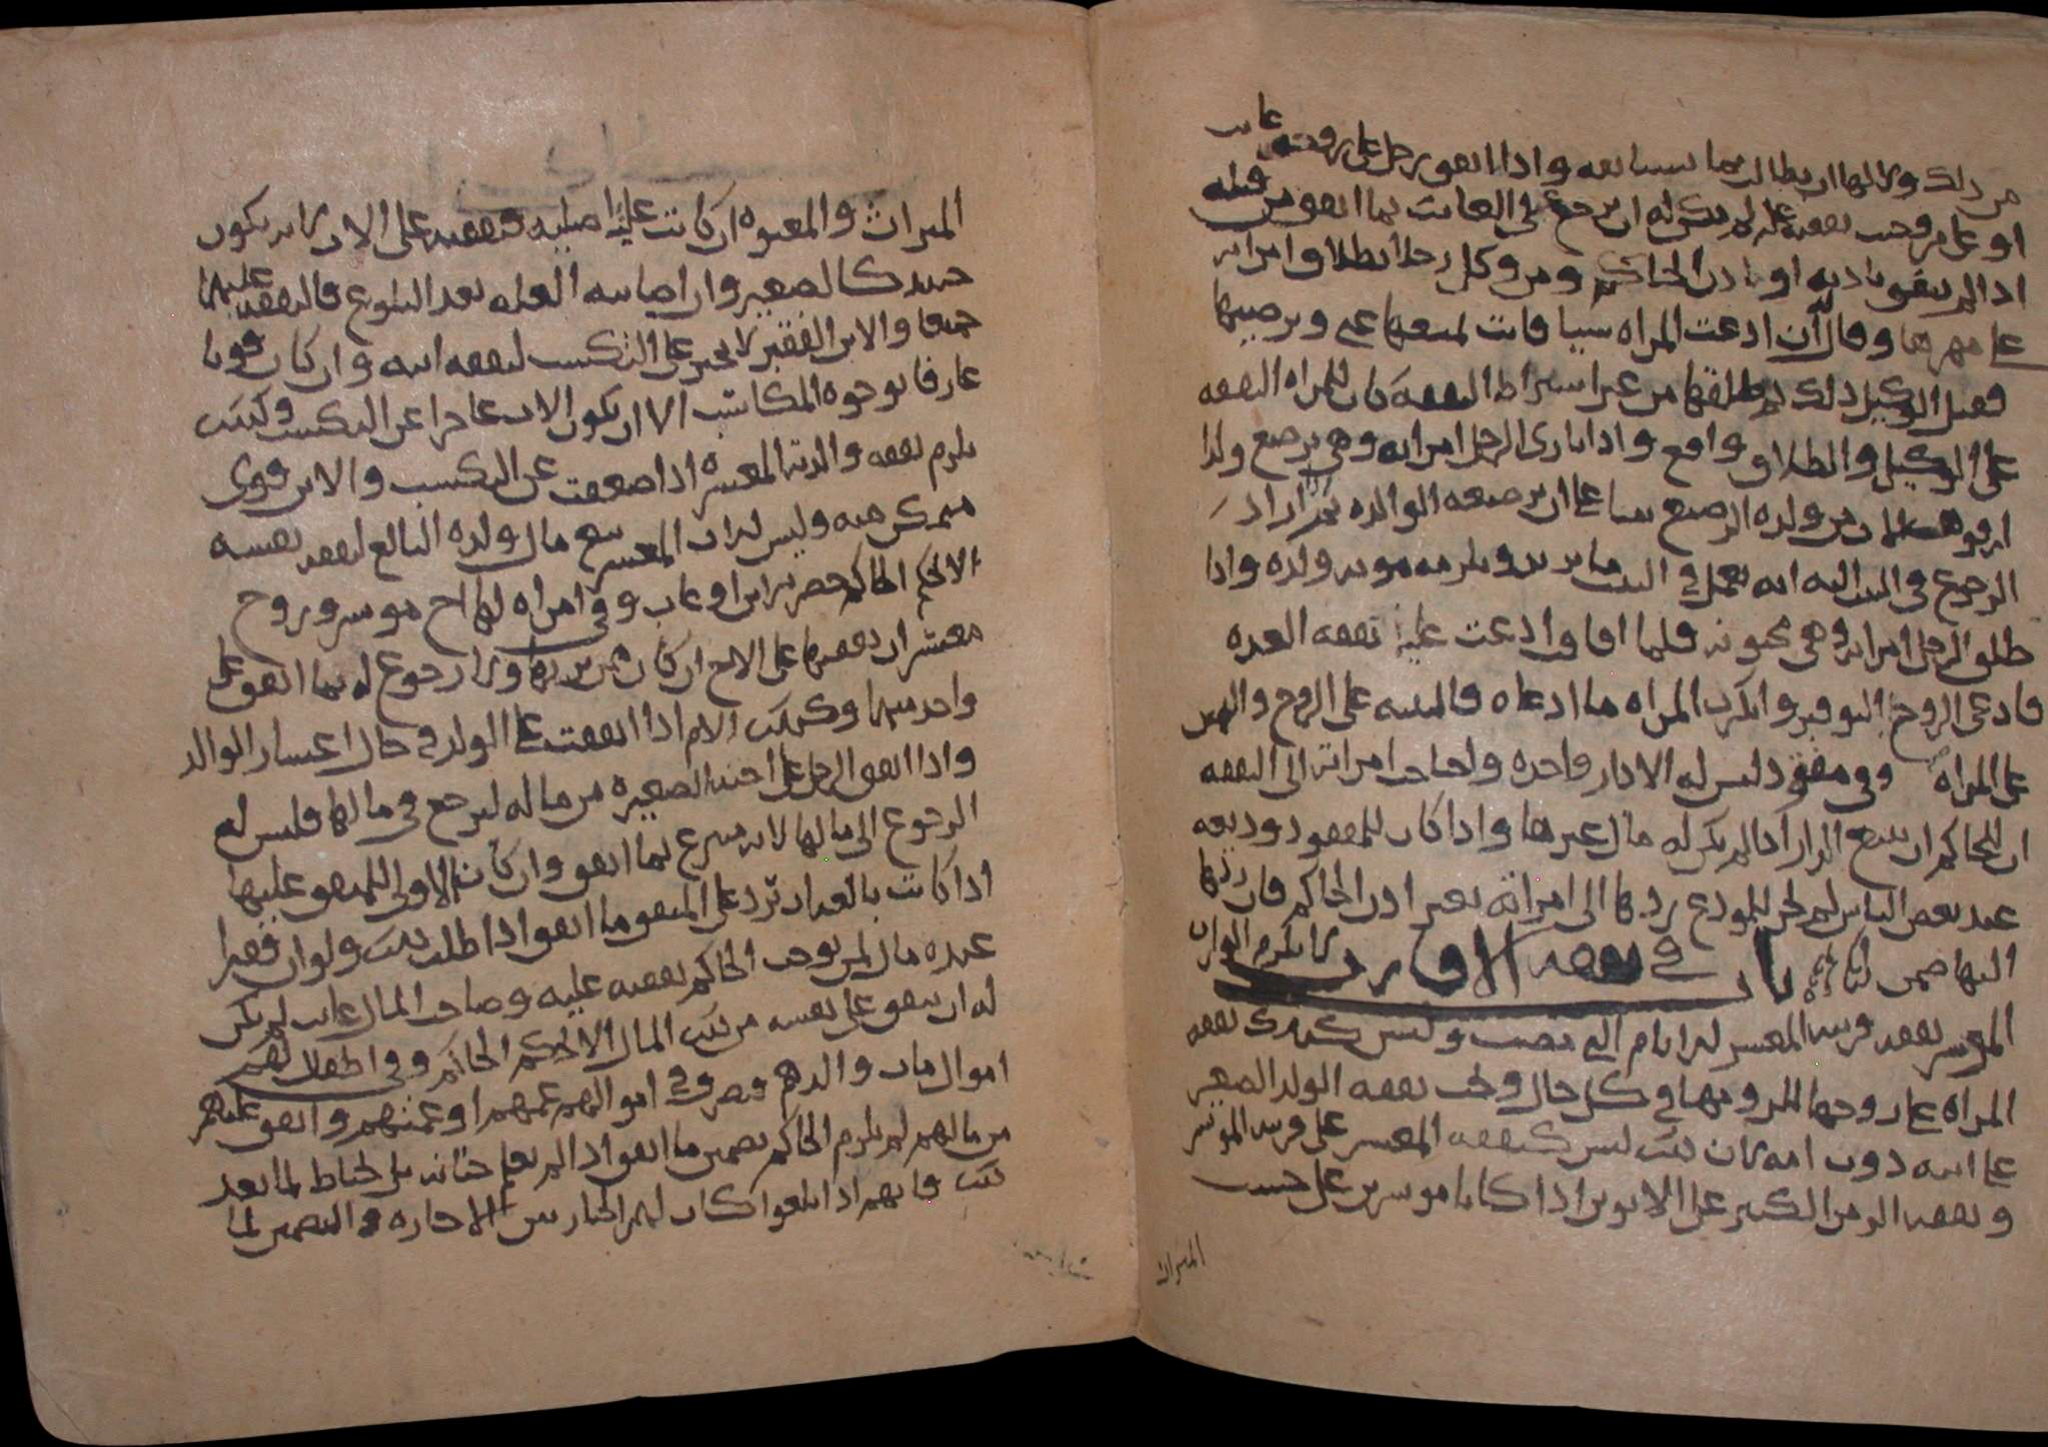 من ذلك ولا لها ان يطالب بما سيبا بعد واذا انفق رجل على زوجة غايب
او على من وجبت نفقته عليه لم يكن له ان يرجع على الغايب بما انفق من قبله
اذا لم ينفق باذنه او باذن الحاكم ومن وكل رجلا بطلاق امراته
على مهرها وقال له ان ادعت المراه شيا فانت لمنعها عني وترضيها
فقبل الوكيل ذلك ثم طلقها من غير اشتراط النفقه كان للمراه النفقه
على الوكيل والطلاق واقع واذا بارى الرجل امراته وهي ترضع ولدا
من ولده الرضيع سنا على ان ترضعه الوالده ثم اراد
الرجوع في البيت اليه انه يعمل في البيت ما يريد ويلزمه مونه ولده واذا
طلق الرجل امراته وهي مجنونه فلما افاقت ادعت عليه نفقه العده
فادعى الزوج التوفير وانكرت المراه ما ادعاه فالبينه على الزوج واليمين
على المراه وفي مفقود ليس له الا دار واحده واحتاجت امراته الى النفقه
ان للحاكم ان يبيع الدار اذا لم يكن له مال غيرها واذا كان للمفقود وديعه
عند بعض الناس لم يجز للمودع ردها الى امراته بغير اذن الحاكم فان ردها
اليها ضمن باب في نفقه الاقارب لا يلزم الوارث
الموسر نفقه قريبه المعسر لو ايام التي مضت وليس كذلك نفقه
المراه على زوجها للزومها في كل حال وتجب نفقه الولد الصغير
على ابيه دون امه لان ذلك ليس كنفقه المعسر على قريبه الموسر
ونفقه الزمن الكبير على الابوين اذا كانا موسرين على حسب
الميراث
الميراث والمعتوه ان كانت علته اصليه فنفقته على الاب لانه يكون
حينيذ كالصغير وان اصابته العله بعد البلوغ فالنفقه عليهما
جميعا والابن الفقير لا يجبر على التكسب لنفقه ابيه وان كان قويا
عارفا بوجوه المكاسب الا ان يكون الاب عاجزا عن التكسب وكذلك
يلزم نفقه والدته المعسره اذا ضعفت عن التكسب والابن قوي
متمكن منه وليس للاب المعسر بيع مال ولده البالغ لنفقه نفسه
الا بحكم الحاكم حضر الابن او غاب وفي امراه لها اخ موسر وزوج
معسر ان نفقتها على الاخ ان كان ممن يرثها ولا رجوع له بما انفق على
واحد منهما وكذلك الام اذا انفقت على الولد في حال اعسار الوالد
واذا انفق الرجل على اخته الصغيره من ماله ليرجع في مالها فليس له
الرجوع الى مالها لانه متبرع بما انفق وان كان الاولى للمنفق عليها
اذا كانت بالغه ان ترد على المنفق ما انفق اذا طلب ذلك ولو ان فقيرا
عنده مال لمن يوجب الحاكم نفقته عليه وصاحب المال غايب لم يكن
له ان ينفق على نفسه من ذلك المال الا بحكم الحاكم وفي اطفال لهم
اموال مات والدهم فتصرف في اموالهم عمهم او عمتهم وانفق عليهم
من مالهم لم يلزم الحاكم تضمين ما انفق اذا لم يعلم خيانه بل يحتاط لما بعد
ذلك فانهم اذا بلغوا كان لهم الخيار بين الاجازه والتضمين لما